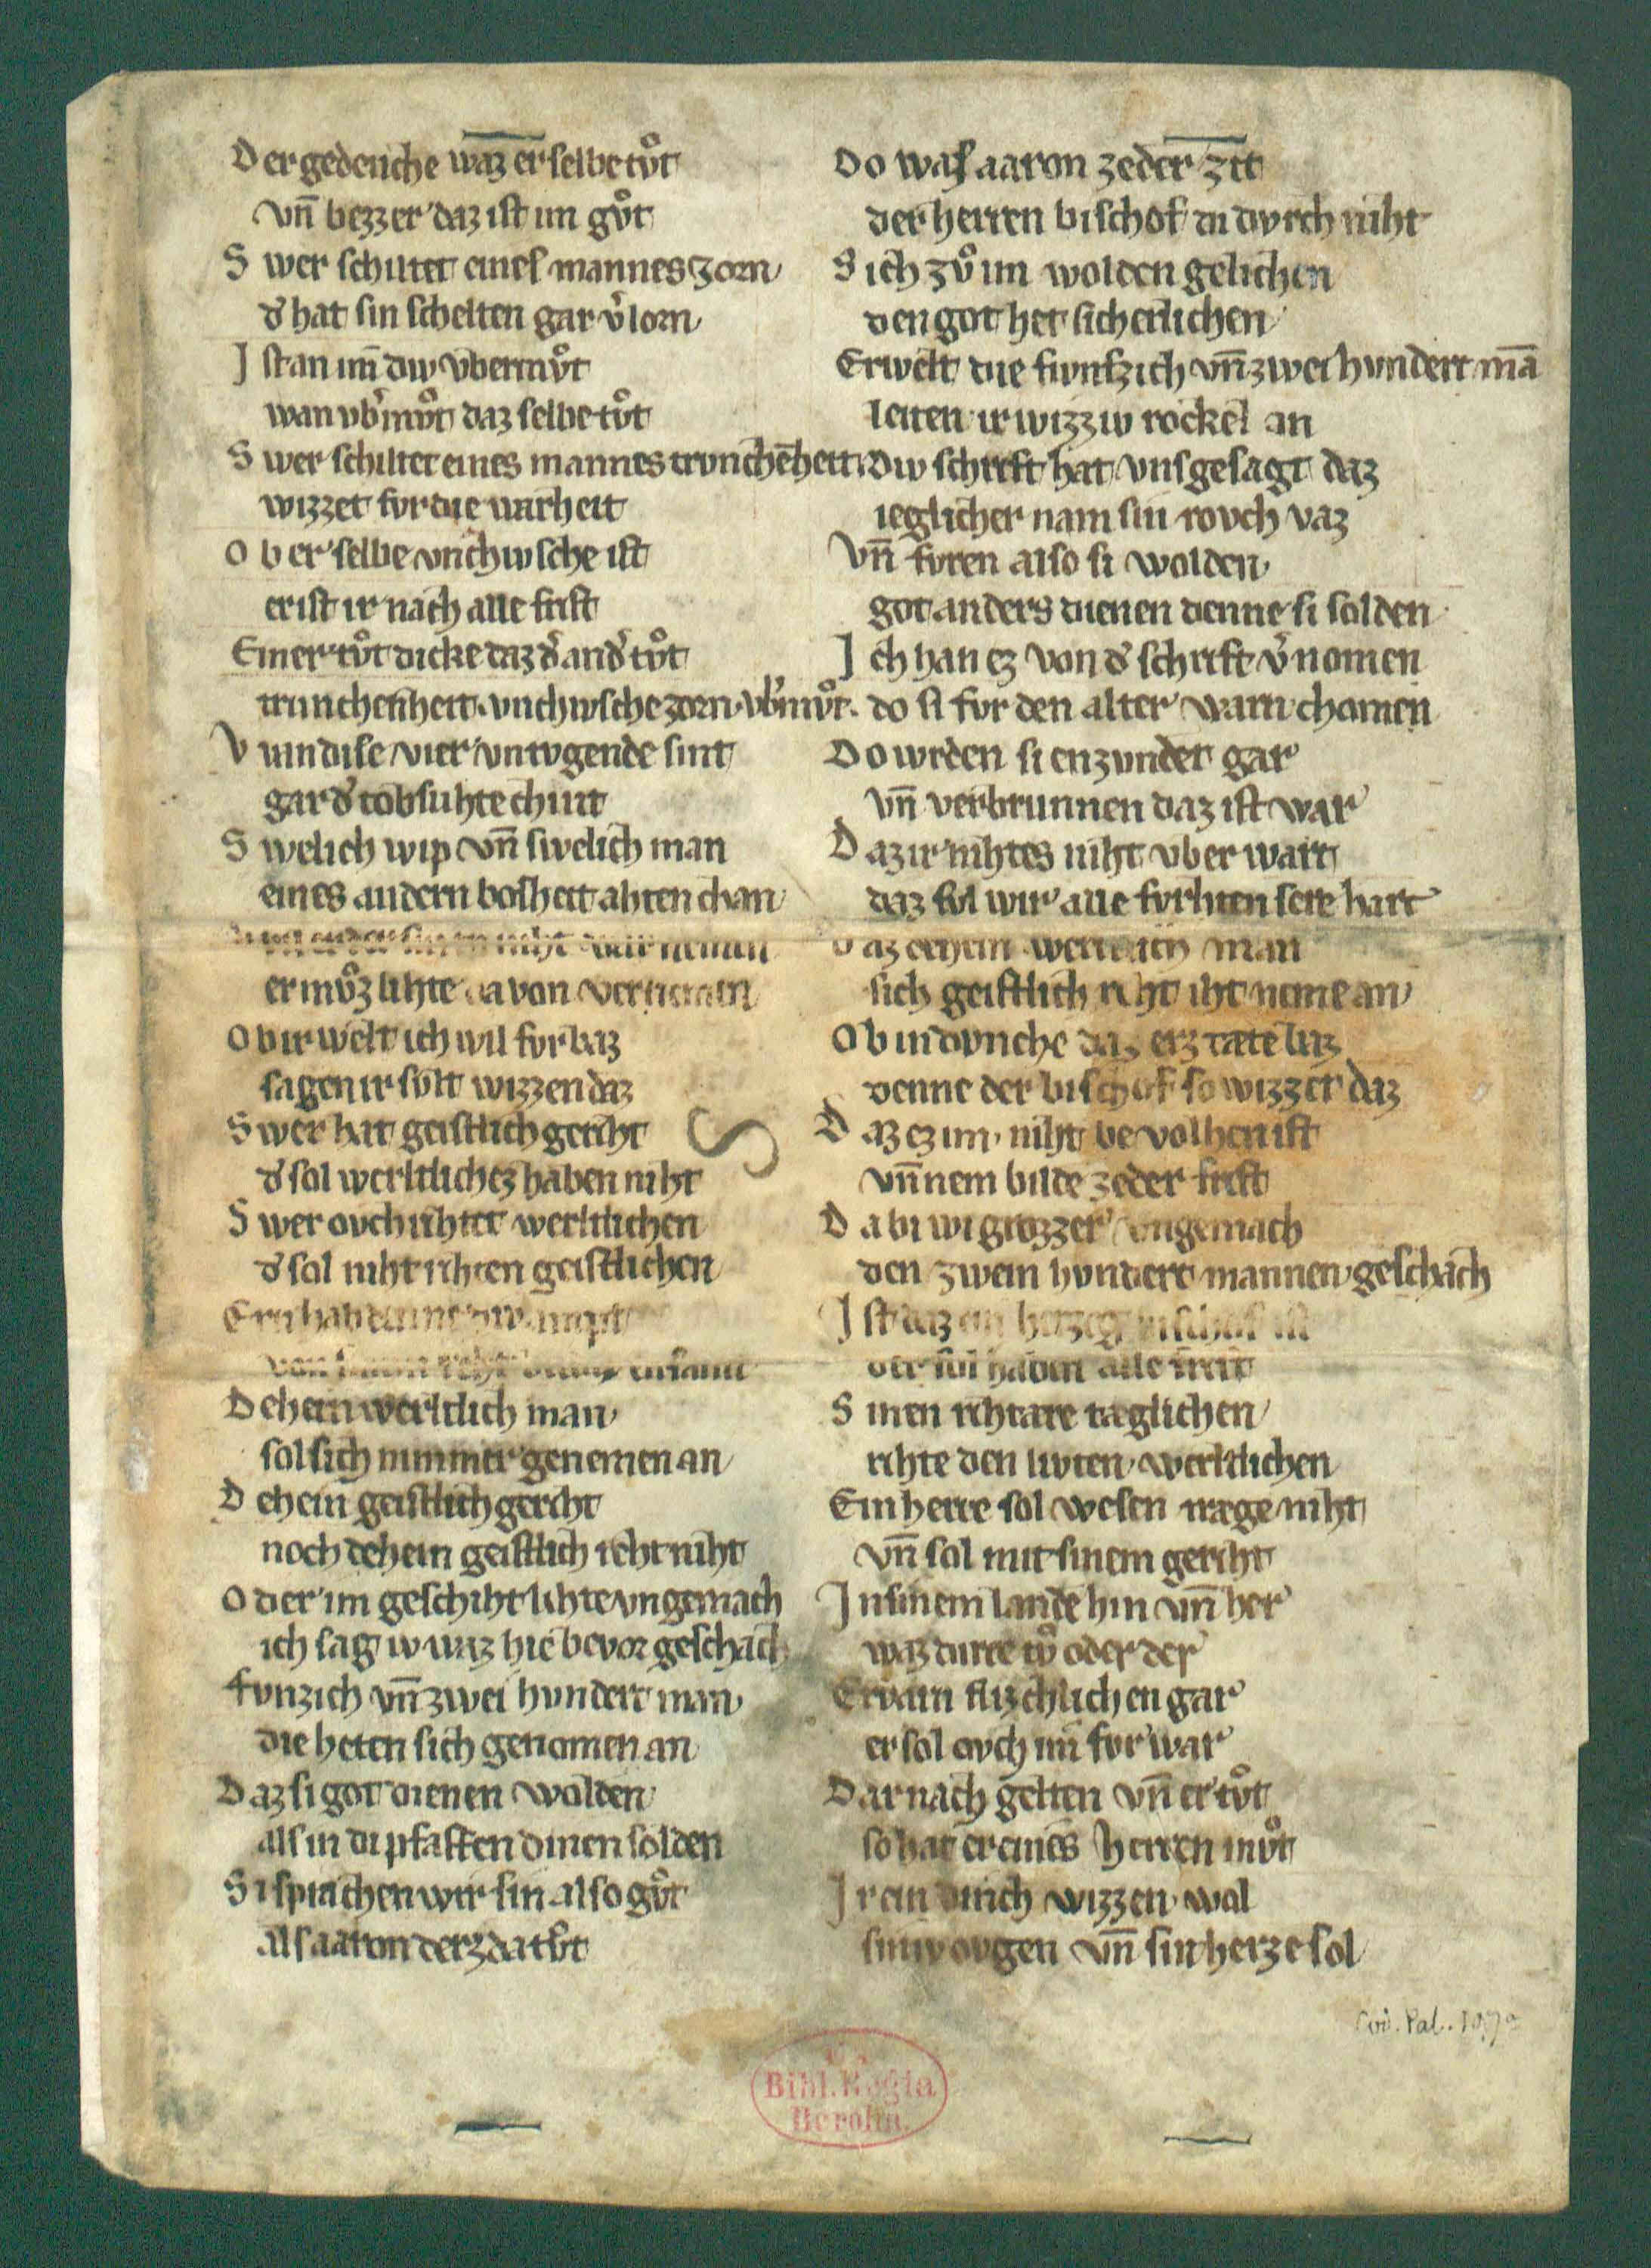 D er gedenche waz er selbe tůt
vn̄ bezzer daz ist im gůt
S wer schiltet eines mannes zorn
d̓ hat sin schelten gar v̓lorn
I st an im̄ diw vbermůt
wan vb̓můt daz selbe tůt
S wer schiltet eines mannes trvnchēheit
wizzet fvr die warheit
O b er selbe vnchivsche ist
er ist ir nach alle frist
Einer tůt dicke daz d̓ and̓ tůt
trunchenheit. vnchivsche zorn. vb̓můt.
V nin dise vier vntvgende sint
gar d̓ tobsuhte chint
S welich wip vn̄ swelich man
eines andern bosheit ahten chan
niht war nemen
er můz lihte da von
O b ir welt ich wil fvrbaz
sagen ir svlt wizzen daz
S wer hat geistlich geriht
d̓ sol werltlichez haben niht
S wer ovch rihtet werltlichen
d̓ sol niht rihten geistlichen
D ehein werltlich man
sol sich nimmer genemen an
D ehein geistlich geriht
noch dehein geistlich reht niht
O der im geschiht lihte vngemach
ich sag iv waz hie bevor geschach
fvnzich vn̄ zwei hvndert man
die heten sich genomen an
D az si got dienen wolden
als in di pfaffen dinen solden
S i sprachen wir sin also gůt
als aaron derz da tůt
D o was aaron ze der zit
der herren bischof di dvrch niht
S ich zů im wolden gelichen
den got het sicherlichen
Erwelt die fivnfzich vn̄ zwei hvndert mā
leiten ir wizziv rockel an
Diw schrift hat vns gesagt daz
ieglicher nam sin rovch vaz
Vn̄ fvren also si wolden
got anders dienen denne si solden
I ch han ez von d̓ schrift v̓nomen
do si fvr den alter warn chomen
D o wrden si enzvndet gar
vn̄ verbrunnen daz ist war
D az ir nihtes niht vber wart
daz svl wir alle fvrhten sere hart
D az dehein werltlich man
sich geistlich reht iht neme an
O b in dvnche daz erz tæte baz
denne der bischof so wizzer daz
D az ez im niht bevolhen ist
vn̄ nem bilde ze der frist
D a bi wi grozzer vngemach
den zwein hvndert mannen geschach
I st daz ein herzog bischof ist
der sol haben alle frist
S inen rihtære tæglichen
rihte den livten werltlichen
Ein herre sol wesen træge niht
vn̄ sol mit sinem geriht
I n sinem lande hin vn̄ her
waz dirre tů oder der
Ervarn flizchlichen gar
er sol ovch im fvr war
D ar nach gelten vn̄ er tůt
so hat er eines herren můt
I r ein wizzen wol
siniv ovgen vn̄ sin herze sol
S
Cod. Pal.
Bibl. Regia
Berolin.